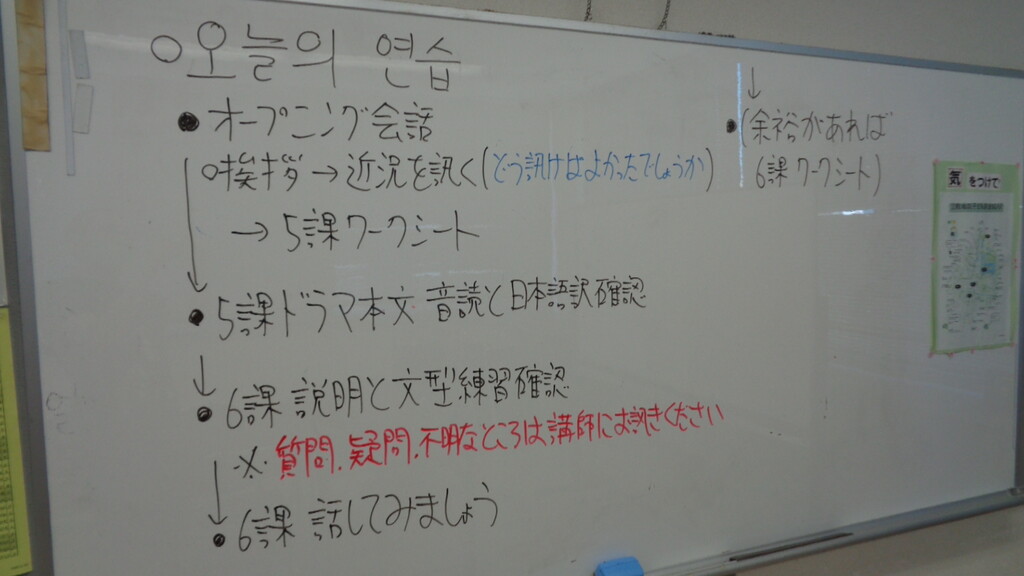 ○오늘의 연습
●オープニング会話
○挨拶→近況を訊く(どう訊けばよかったでしょうか)
→5課ワークシート
●5課ドラマ本文 音読と日本語訳確認
●6課 説明と文型練習確認
※質問、疑問、不明なところは講師にお訊きください
●6課 話してみましょう
↓
●(余裕があれば
6課 ワークシート)
気をつけて!